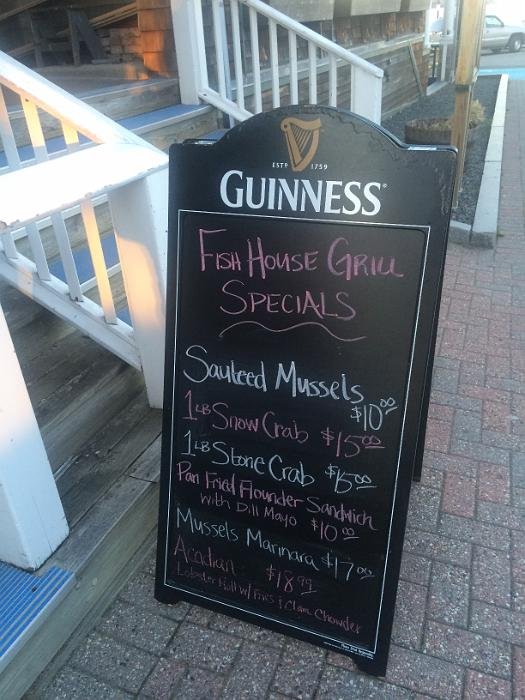 ESTD 1759
GUINNESS®
FISH HOUSE GRILL
SPECIALS
Sauteed Mussels
$10.00
1 LB Snow Crab $15.00
1 LB Stone Crab $15.00
Pan Fried Flounder Sandwich
with Dill Mayo $10.00
Mussels Marinara $17.00
Acadian $18.99
Lobster Roll w/ Fries & Clam Chowder